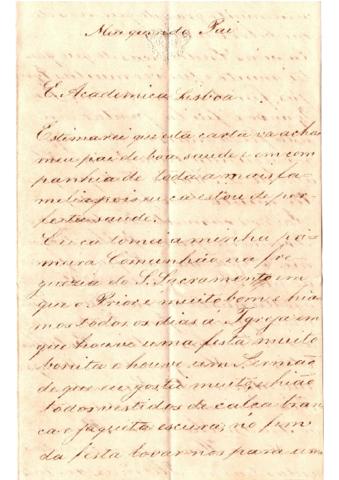 Meu querido Pai
E. Academica Lisboa
Estimarei que esta carta vá achar
meu pai de boa saude e em com
panhia de toda a mais fa
melia pois eu cá estou de per
feita saude.
Eu cá tomei a minha pri
meira Comunhão na fre
guezia do S. Sacramento em
que o Prior é muito bom e hia
mos todos os dias á Igreja em
que houve uma festa muito
bonita e houve um Sermão
de que eu gostei muito, e hião
todos vestidos de calça bran
ca e jaqueta escura; no fim
da festa levar nos para um